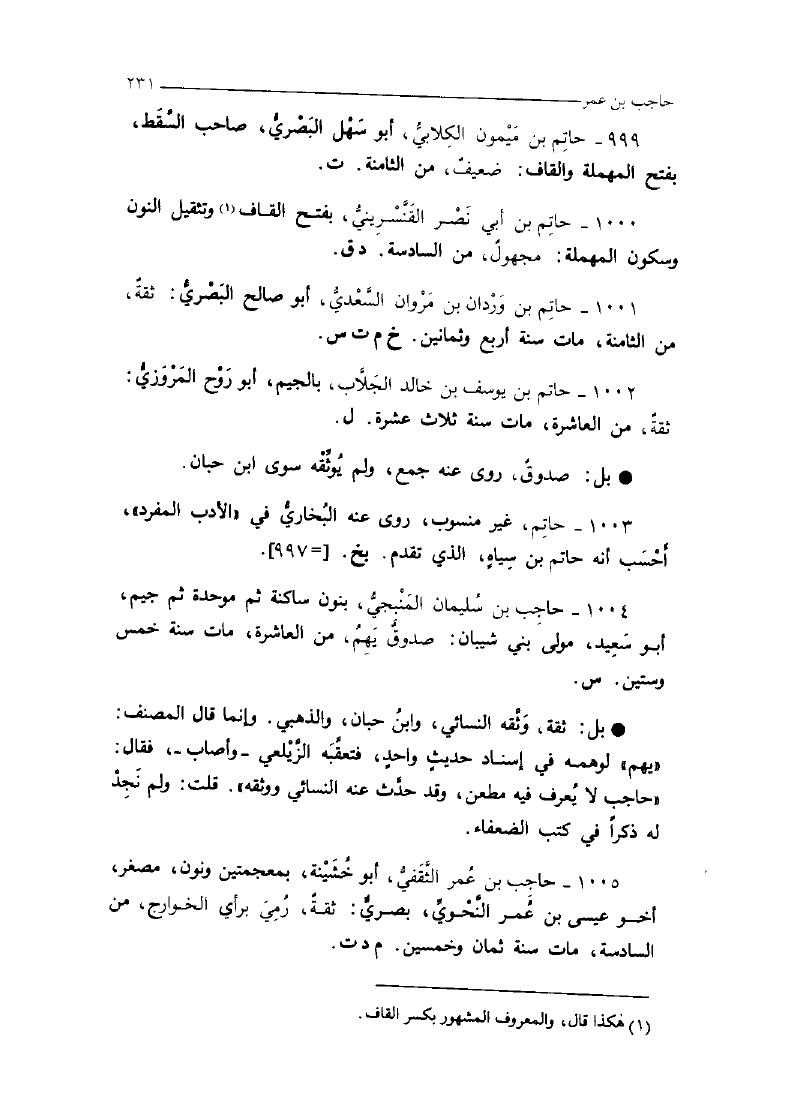 حاجب بن عمر ٢٣١
٩٩٩ ـ حاتِم بن مَيْمون الكِلابيُّ، أبو سَهْل البَصْريُّ، صاحب السَّقَط،
بفتح المهملة والقاف: ضعيفٌ، من الثامنة. ت.
١٠٠٠ ـ حاتِم بن أبي نَصْر القَنَّسْرِينيُّ، بفتح القاف(١) وتثقيل النون
وسكون المهملة: مجهولٌ، من السادسة. د ق.
١٠٠١ ـ حاتِم بن وَرْدان بن مَرْوان السَّعْديُّ، أبو صالح البَصْريُّ: ثقةٌ،
من الثامنة، مات سنة أربع وثمانين. خ م ت س.
١٠٠٢ ـ حاتم بن يوسف بن خالد الجَلَّاب، بالجيم، أبو رَوْح المَرْوَزيُّ:
ثقةٌ، من العاشرة، مات سنة ثلاث عشرة. ل.
● بل: صدوقٌ، روى عنه جمع، ولم يُوثِّقْه سوى ابن حبان.
١٠٠٣ ـ حاتِم، غير منسوب، روى عنه البُخاريُّ في «الأدب المفرد»،
أَحْسَب أنه حاتم بن سِياهٍ، الذي تقدم. بخ. [=٩٩٧].
١٠٠٤ ـ حاجِب بن سُليمان المَنْبِجيُّ، بنون ساكنة ثم موحدة ثم جيم،
أبو سَعِيد، مولى بني شيبان: صدوقٌ يَهِمُ، من العاشرة، مات سنة خمس
وستين. س.
● بل: ثقة، وَثَّقه النسائي، وابنُ حبان، والذهبي. وإنما قال المصنف:
«يهم» لوهمه في إسناد حديثٍ واحدٍ، فتعقَّبَه الزَّيْلعي ـ وأصاب ـ، فقال:
«حاجب لا يُعرف فيه مطعن، وقد حدَّث عنه النسائي ووثقه». قلت: ولم نَجِدْ
له ذكراً في كتب الضعفاء.
١٠٠٥ ـ حاجِب بن عُمر الثَّقَفيُّ، أبو خُشَيْنة، بمعجمتين ونون، مصغر،
أخو عيسى بن عُمر النَّحْويِّ، بصريٌّ: ثقةٌ، رُمِيَ برأي الخوارج، من
السادسة، مات سنة ثمان وخمسين. م د ت.
(١) هٰكذا قال، والمعروف المشهور بكسر القاف.